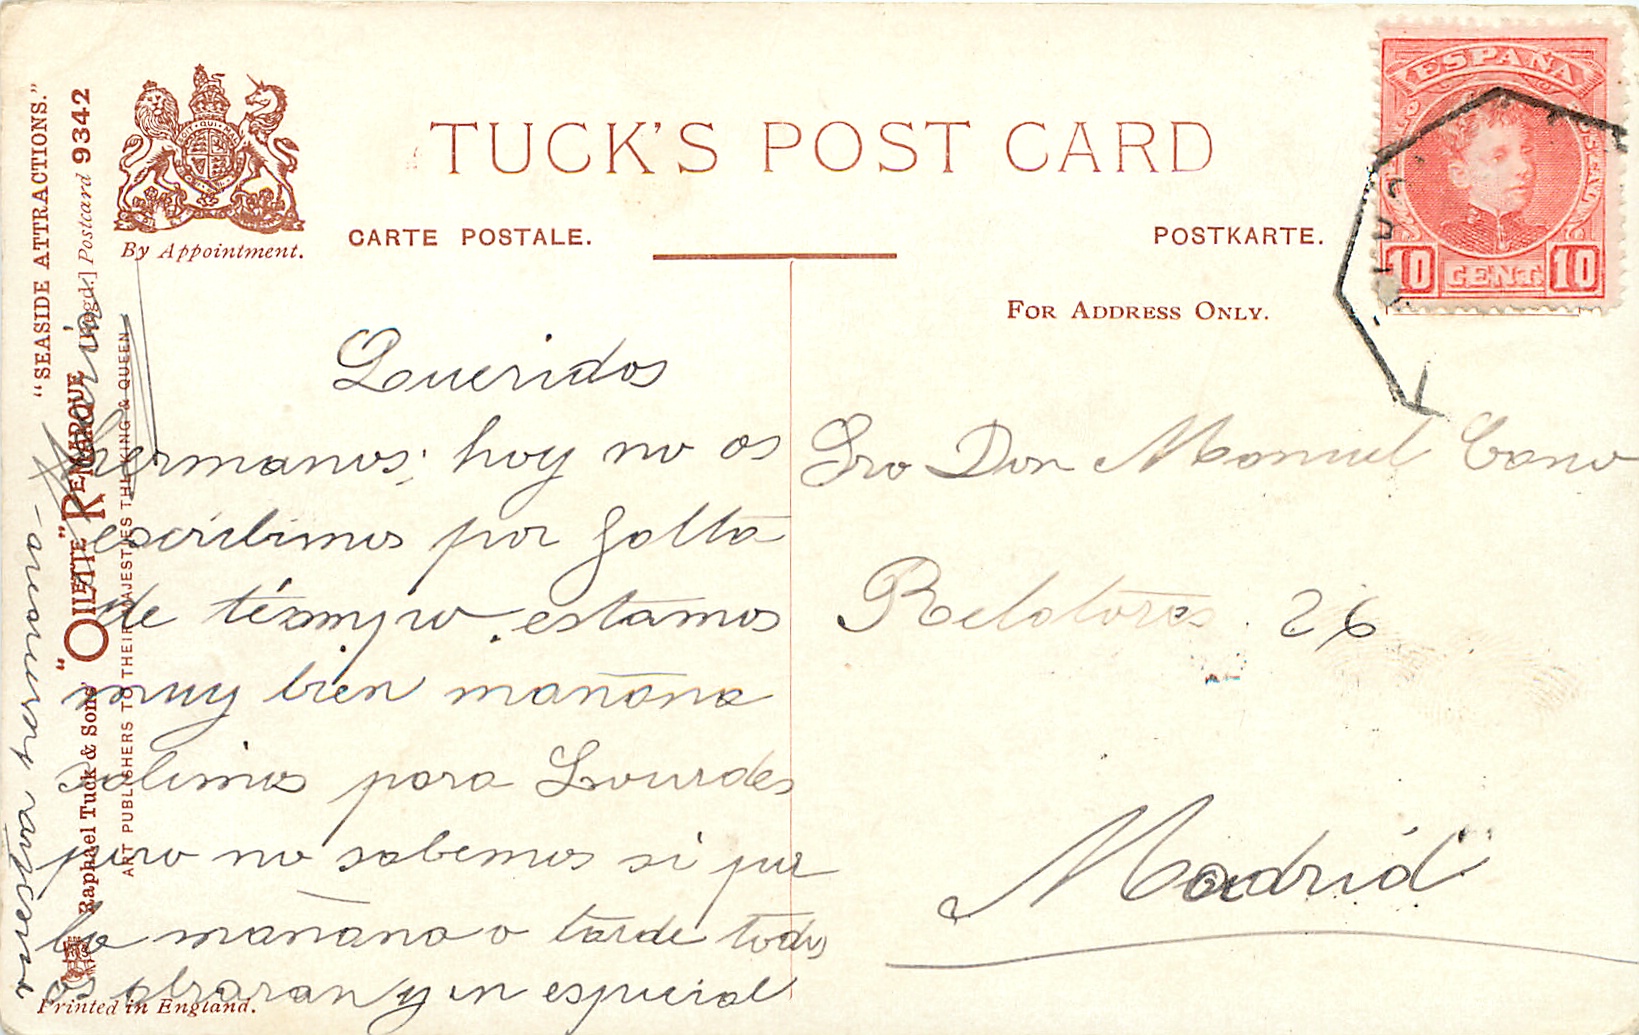 TUCK'S POST CARD
CARTE POSTALE.
POSTKARTE.
FOR ADDRESS ONLY.
By Appointment.
ESPAÑA
10 CENT. 10
"SEASIDE ATTRACTIONS."
Raphael Tuck & Sons' "OILETTE" REMARQUE [Regd.] Postcard 9342
ART PUBLISHERS TO THEIR MAJESTIES THE KING & QUEEN
Printed in England.
Queridos
hermanos; hoy no os
escribimos por falta
de tiempo. estamos
muy bien mañana
salimos para Lourdes
pero no sabemos si por
la mañana o tarde todos
os abrazan y en especial
Sro Don Manuel Cano
Relatores 26
Madrid